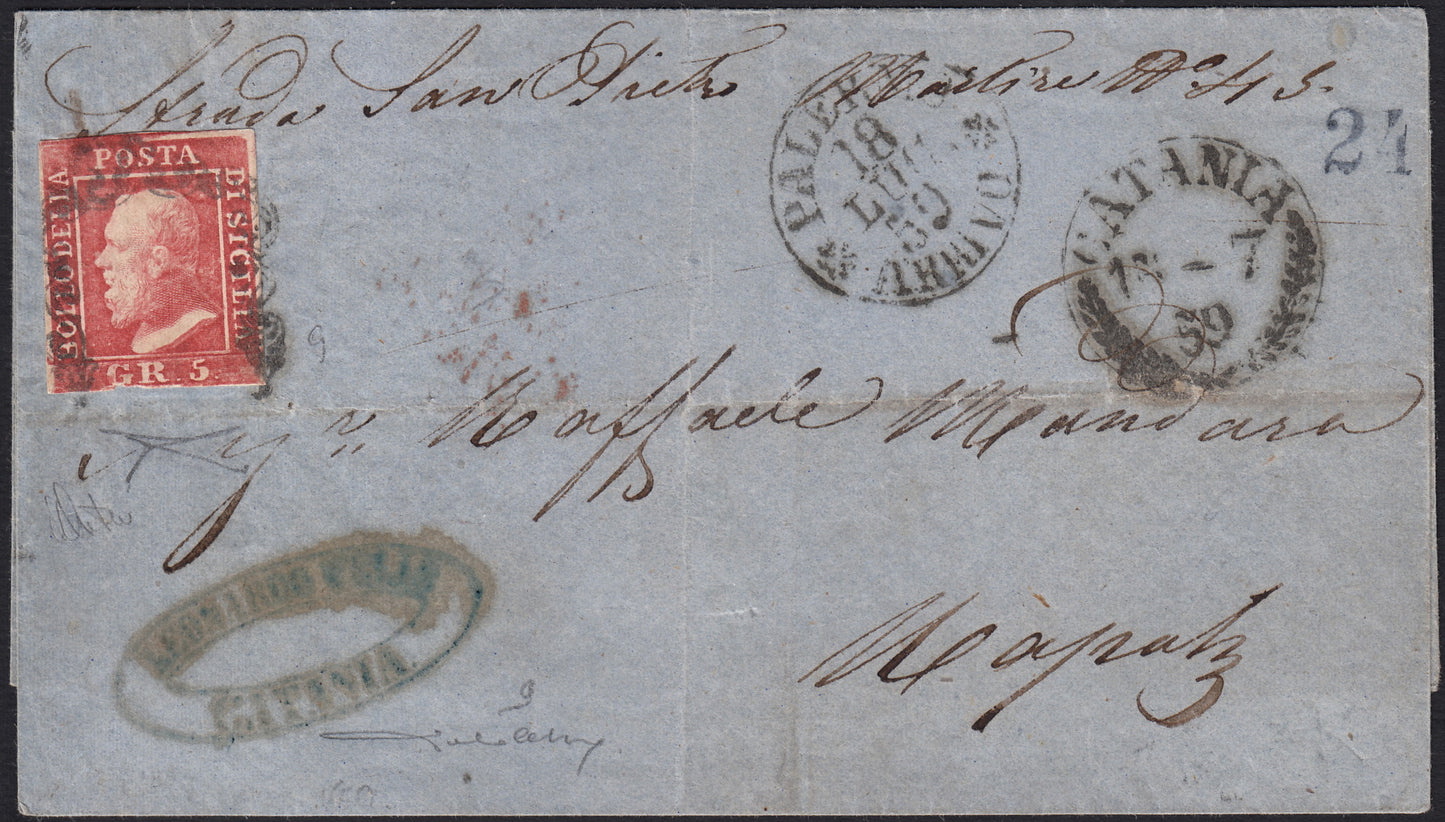 Strada San Pietro Martire No. 43.
24
BOLLO DELLA
POSTA
DI SICILIA
GR. 5.
PALERMO
18
LUG.
59
ARRIVO
CATANIA
- 7
59
Raffaele Mandara
Napoli
CATANIA.
9
9